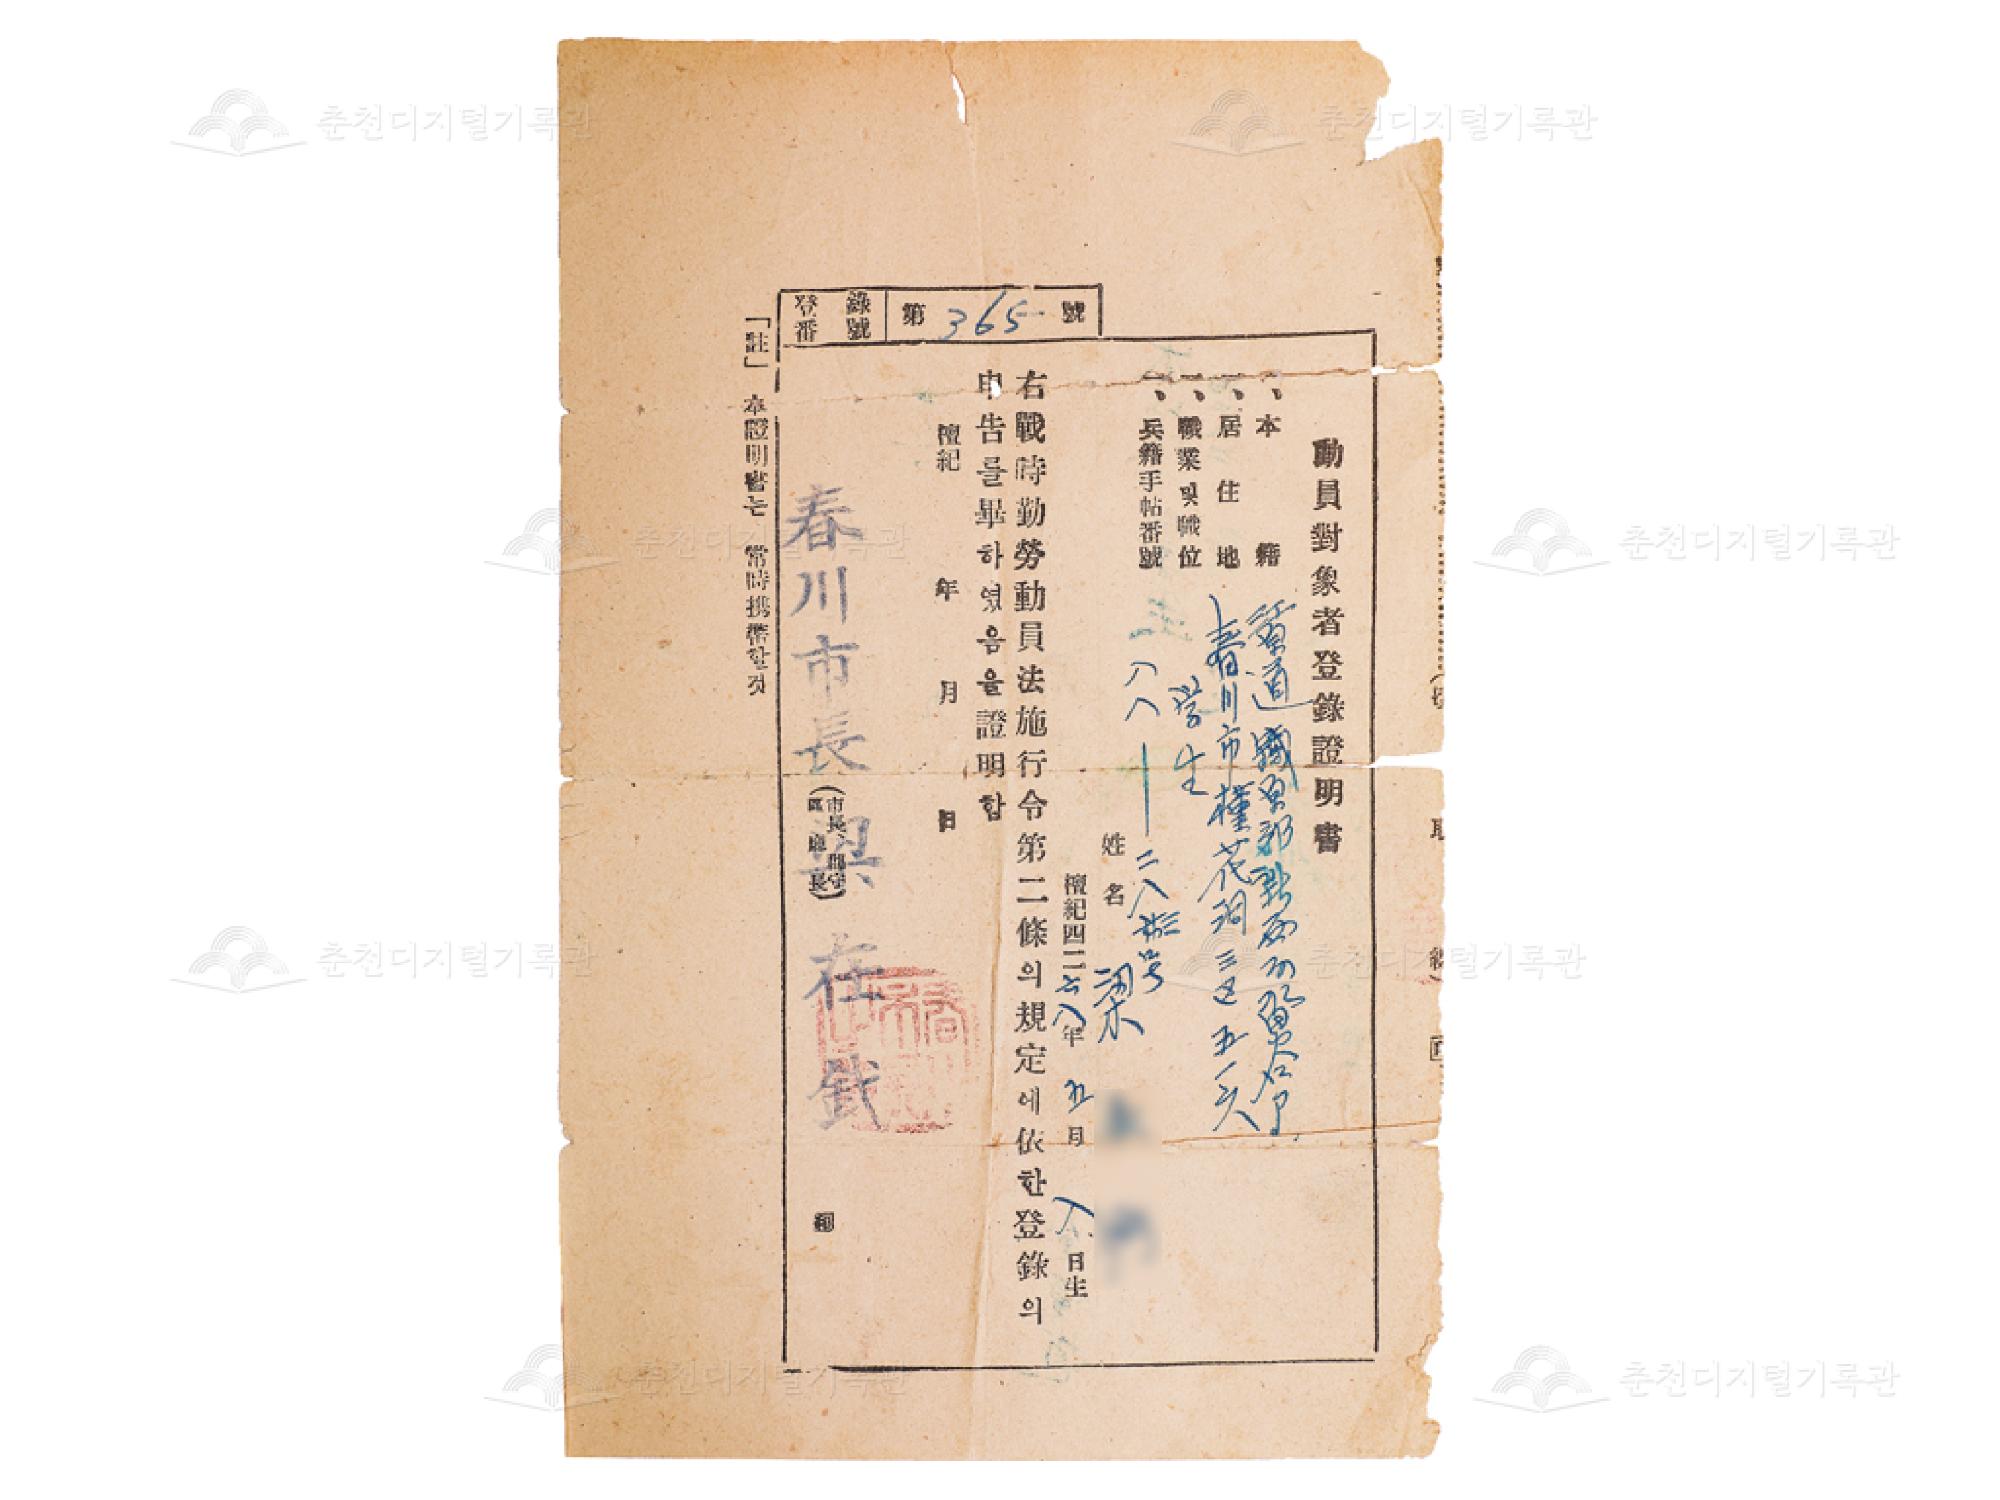 登錄番號 第 365 號
動員對象者登錄證明書
一、本籍
一、居住地 春川市槿花洞三區五一六
一、職業및職位 学生
一、兵籍手帖番號 八八―二八
姓名 梁
檀紀四二六八年 五月 八日生
右戰時勤勞動員法施行令第二條의規定에依한登錄의
申告를畢하였음을證明함
檀紀 年 月 日
春川市長 梁在 (市長、郡守 區廳長) 印
「註」 本證明書는 常時携帶할것
춘천디지털기록관
춘천디지털기록관
춘천디지털기록관
춘천디지털기록관
춘천디지털기록관
춘천디지털기록관
춘천디지털기록관
춘천디지털기록관